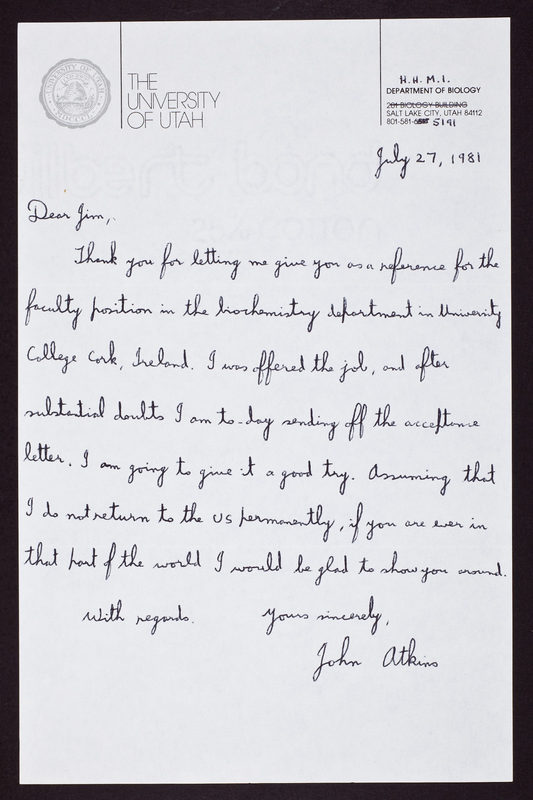 UNIVERSITY OF UTAH
THE
UNIVERSITY
OF UTAH
H.H.M.I.
DEPARTMENT OF BIOLOGY
201 BIOLOGY BUILDING
SALT LAKE CITY, UTAH 84112
801-581- 5191
July 27, 1981
Dear Jim,
Thank you for letting me give you as a reference for the
faculty position in the biochemistry department in University
College Cork, Ireland. I was offered the job, and after
substantial doubts I am to-day sending off the acceptance
letter. I am going to give it a good try. Assuming that
I do not return to the US permanently, if you are ever in
that part of the world I would be glad to show you around.
With regards. Yours sincerely,
John Atkins